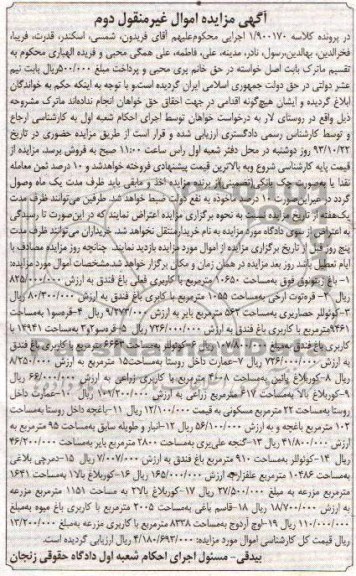 آگهی مزایده اموال غیرمنقول دوم
در پرونده کلاسه ۱/۹۰۰۱۷۰ اجرایی محکوم‌علیهم آقای فریدون، شمسی، اسکندر، قدرت، فریبا،
فخرالدین، بهالدین، رسول، نادر، مدینه، علی، فاطمه، علی همگی محبی و فریده الهیاری محکوم به
تقسیم ماترک بابت اصل خواسته در حق خانم پری محبی و پرداخت مبلغ ۵۰۰/۰۰۰ریال بابت نیم
عشر دولتی در حق دولت جمهوری اسلامی ایران گردیده است.و با توجه به اینکه حکم به خواندگان
ابلاغ گردیده و ایشان هیچ‌گونه اقدامی در جهت احقاق حق خواهان انجام نداده‌اند ماترک مشروحه
ذیل واقع در روستای لار به درخواست خواهان توسط اجرای احکام شعبه اول به کارشناسی ارجاع
و توسط کارشناس رسمی دادگستری ارزیابی شده و قرار است از طریق مزایده حضوری در تاریخ
۹۳/۱۰/۲۲ روز دوشنبه در محل دفتر شعبه اول راس ساعت ۱۱:۰۰ صبح به فروش برسد. مزایده از
قیمت پایه کارشناسی شروع و به بالاترین قیمت پیشنهادی فروخته خواهد شد و ۱۰ درصد ثمن معامله
نقدا یا به صورت چک بانکی (تضمینی) از برنده مزایده اخذ و مابقی باید ظرف مدت یک ماه وصول
گردد در غیر این صورت ۱۰ درصد ماخوذه به نفع دولت ضبط خواهد شد. طرفین می‌توانند ظرف مدت
یک هفته از تاریخ مزایده نسبت به نحوه برگزاری مزایده اعتراض نمایند که در این صورت تا رسیدگی
به اعتراض از سوی دادگاه مورد مزایده به نام خریدار منتقل نخواهد شد. خریداران می‌توانند ظرف مدت
پنج روز قبل از تاریخ برگزاری مزایده از اموال مورد مزایده بازدید نمایند. چنانچه روز مزایده مصادف با
ایام تعطیل باشد روز بعد مزایده در همان زمان و مکان برگزار خواهد شد.مشخصات اموال مورد مزایده:
۱- باغ زیتونوق فوق به مساحت ۱۰۶۵۰ مترمربع با کاربری فعلی باغ فندق به ارزش ۸۲۵/۰۰۰/۰۰۰
ریال ۲- قره‌توت ارخی به مساحت ۱۰۵۵ مترمربع با کابری باغ فندق به ارزش ۸۰/۳۰۰/۰۰۰ ریال
۳-کوئوللر حصاریری به مساحت ۵۶۲ مترمربع بایر به ارزش ۹/۲۷۳/۰۰۰ ریال ۴-قره‌سو۱ به مساحت
۹۴۶۱مترمربع با کاربری باغ فندق به ارزش ۷۲۶/۰۰۰/۰۰۰ ریال ۵-قره‌سو۲و۳ به مساحت ۱۳۹۴۱ با
کاربری باغ فندق به مبلغ ریال ۶-کوئوللر به مساحت ۶۶۶۳ مترمربع با کاربری باغ فندق
به ارزش ۷۲۶/۰۰۰/۰۰۰ ریال ۷-عمارت داخل روستا به مساحت۱۵ مترمربع به ارزش ۸/۲۵۰/۰۰۰
ریال ۸-کوربلاغ پائین به مساحت مترمربع با کاربری زراعی به ارزش ۶۶/۰۰۰/۰۰۰ ریال
۹-کوربلاغ بالا به مساحت ۶۱۷ مترمربع زراعی به ارزش ۱۰۹/۲۰۰/۰۰۰ ریال ۱۰-عمارت داخل
روستا به مساحت ۲۲ مترمربع مسکونی به قیمت ۱۲/۱۰۰/۰۰۰ ریال ۱۱-باغچه داخل روستا به مساحت
۱۰۲ مترمربع باغچه و به ارزش ۵۶/۱۰۰/۰۰۰ ریال ۱۲-انبار و طویله سابق به مساحت ۹۵ مترمربع به
ارزش ۴۱/۸۰۰/۰۰۰ ریال ۱۳-گنجه علی‌یری به مساحت ۲۸۰۰ مترمربع بایر به ارزش ۴۶/۲۰۰/۰۰۰
ریال ۱۴-کوئولر به مساحت ۹۱۰ مترمربع باغ فندق به ارزش ۷/۰۰۷/۰۰۰ ریال ۱۵-دمرچی بلاغی
به مساحت ۱۰۴۸۶ مترمربع علفزار به ارزش ۱۶۵/۰۰۰/۰۰۰ ریال ۱۶-کوربلاغ بالا۱ به مساحت ۱۶۴۱
مترمربع مزرعه به مبلغ ۲۷/۵۰۰/۰۰۰ ریال ۱۷-کوربلاغ بالا۲ به مساحت ۱۱۵۱ مترمربع مزرعه
به ارزش ۱۸/۷۰۰/۰۰۰ ریال ۱۸-قاسم باغی به مساحت ۲۰۰۵ مترمربع با کاربری باغ میوه به مبلغ
۱۱۰/۰۰۰/۰۰۰ ریال ۱۹-اوچ آردوج به مساحت ۸۳۳۸ مترمربع با کاربری مزرعه به مبلغ ۱۳/۲۰۰/۰۰۰
ریال قیمت کل کارشناسی اموال مورد مزایده: ۴/۱۸۰/۶۹۳/۰۰۰ ریال ارزیابی گردیده است.
بیدقی- مسئول اجرای احکام شعبه اول دادگاه حقوقی زنجان